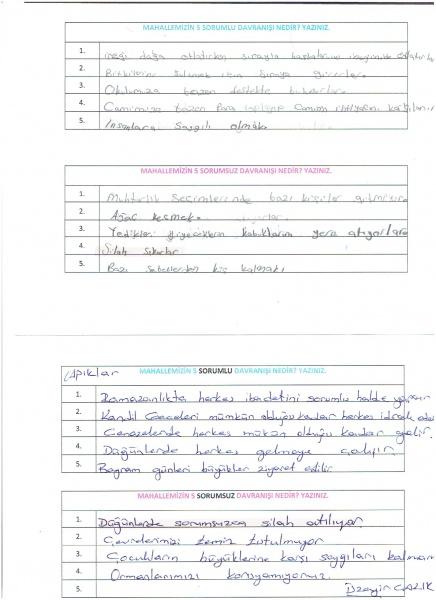 MAHALLEMİZİN 5 SORUMLU DAVRANIŞI NEDİR? YAZINIZ.
1. ineği dağa otlatırken sırayla
2. Bitkilerini sulamak için sıraya girerler.
3. Okulumuza bazen destekte bulunurlar.
4. Camimize bazen Para toplayıp Camim ihtiyacını
5. İnsanlara Saygılı olmak.
MAHALLEMİZİN 5 SORUMSUZ DAVRANIŞI NEDİR? YAZINIZ.
1. Muhtarlık Seçimlerinde bazı kişiler gitmiyor.
2. Ağaç kesmek.
3. Yedikleri yiyeceklerin kabuklarını yere atıyorlar.
4. Silah sıkarlar
5. Bazı
Çapıklar
MAHALLEMİZİN 5 SORUMLU DAVRANIŞI NEDİR? YAZINIZ.
1. Ramazanlıkta herkes ibadetini sorumlu halde yapıyor
2. Kandil Geceleri mümkün olduğu kadar herkes idrak eder
3. Cenazelerde herkes mükün olduğu kadar gelir.
4. Düğünlerde herkes gelmeye çalışır.
5. Bayram günleri büyükler ziyaret edilir
MAHALLEMİZİN 5 SORUMSUZ DAVRANIŞI NEDİR? YAZINIZ.
1. Düğünlerde sorumsuzca silah atılıyor
2. Çevrelerimizi temiz tutulmuyor
3. Çocukların büyüklerine karşı saygıları kalmamı
4. Ormanlarımızı koruyamıyoruz.
5. Üzeyir ÇALIK